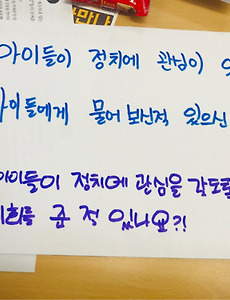 만나
아이들이 정치에 관심이
아이들에게 물어 보신적 있으신
아이들이 정치에 관심을 갖도록
기회를 준 적 있나요?!